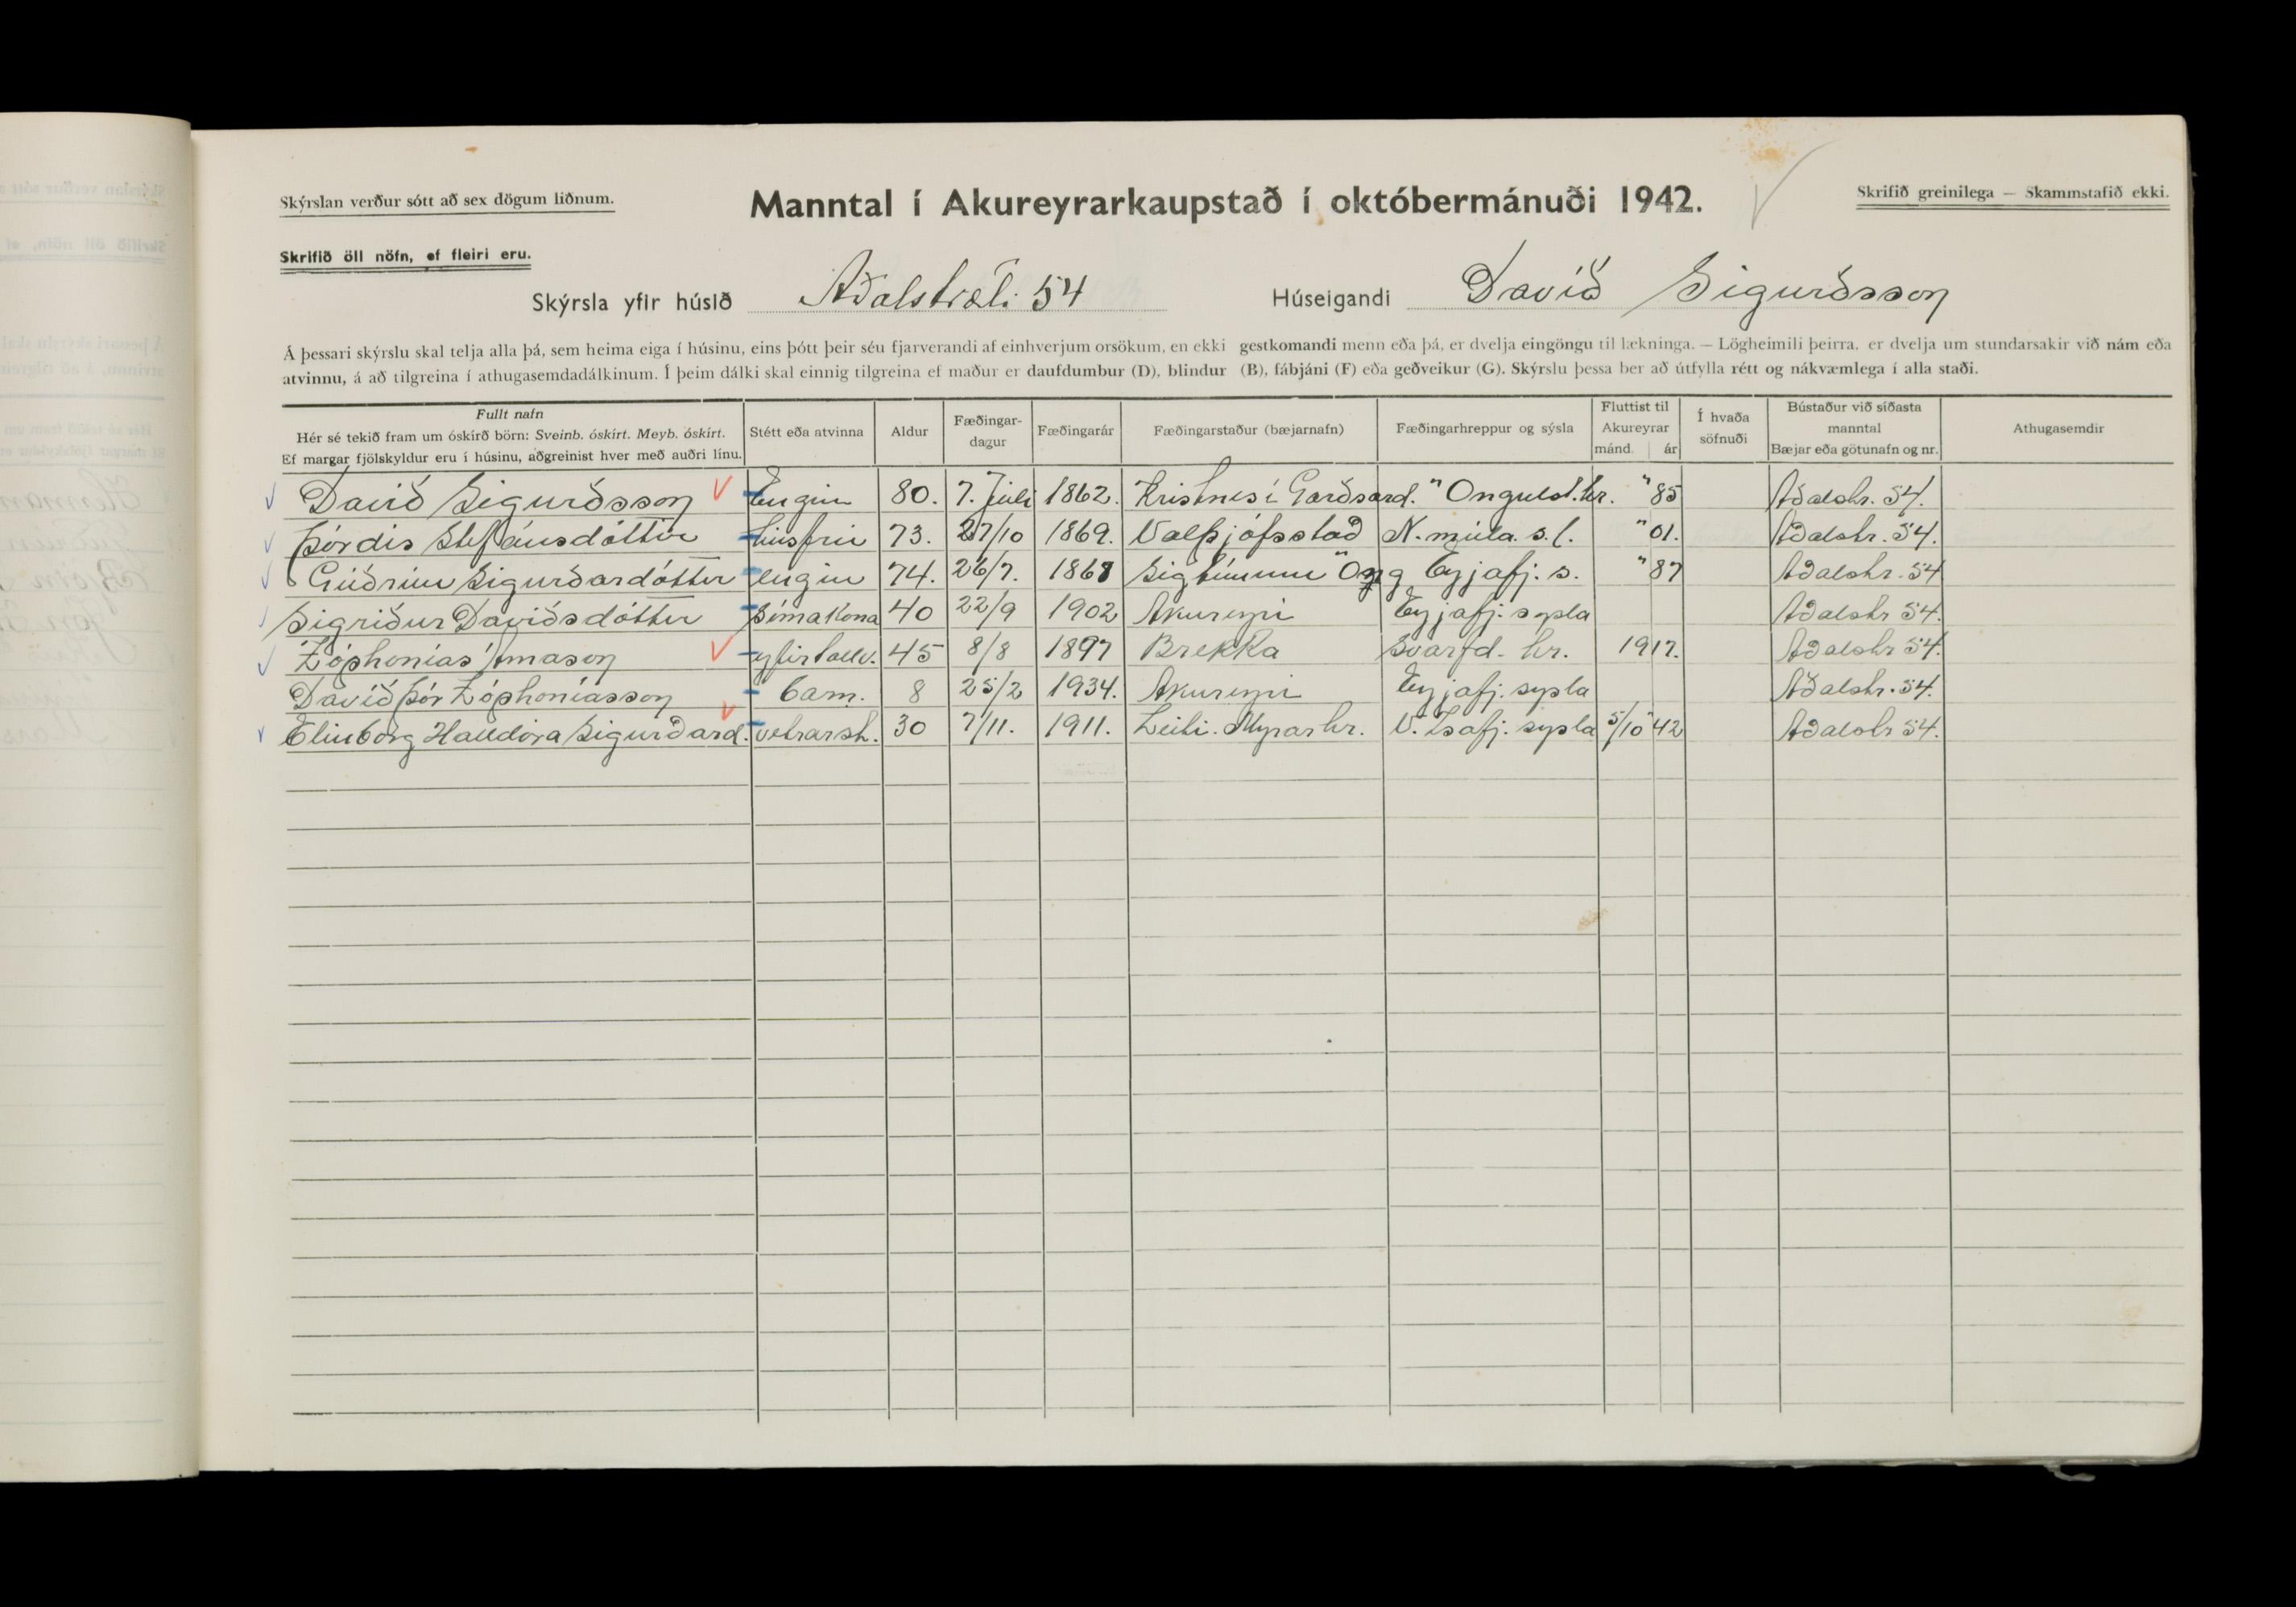 Skýrslan verður sótt að sex dögum liðnum.
Manntal í Akureyrarkaupstað í októbermánuði 1942.
Skrifið greinilega — Skammstafið ekki.
Skrifið öll nöfn, ef fleiri eru.
Skýrsla yfir húsið Aðalstræti 54 Húseigandi Davíð Sigurðsson
Á þessari skýrslu skal telja alla þá, sem heima eiga í húsinu, eins þótt þeir séu fjarverandi af einhverjum orsökum, en ekki gestkomandi menn eða þá, er dvelja eingöngu til lækninga. — Lögheimili þeirra, er dvelja um stundarsakir við nám eða
atvinnu, á að tilgreina í athugasemdadálkinum. Í þeim dálki skal einnig tilgreina ef maður er daufdumbur (D), blindur (B), fábjáni (F) eða geðveikur (G). Skýrslu þessa ber að útfylla rétt og nákvæmlega í alla staði.
Fullt nafn
Hér sé tekið fram um óskírð börn: Sveinb. óskírt. Meyb. óskírt.
Ef margar fjölskyldur eru í húsinu, aðgreinist hver með auðri línu.
Stétt eða atvinna
Aldur
Fæðingar-
dagur
Fæðingarár
Fæðingarstaður (bæjarnafn)
Fæðingarhreppur og sýsla
Fluttist til
Akureyrar
mánd. ár
Í hvaða
söfnuði
Bústaður við síðasta
manntal
Bæjar eða götunafn og nr.
Athugasemdir
Davíð Sigurðsson Engin 80. 7. Júlí 1862. Kristnes í Garðsard. " Öngulst.hr. " 85 Aðalstr. 54.
Þórdís Stefánsdóttir húsfrú 73. 27/10 1869. Valþjófsstað N. múla. s. " 01. Aðalstr. 54.
Guðrún Sigurðardóttir engin 74. 26/7. 1868 Sigtúnum Öng Eyjafj. s. " 87 Aðalstr. 54
Sigríður Davíðsdóttir Símakona 40 22/9 1902 Akureyri Eyjafj. sysla Aðalstr 54.
Zóphonías Árnason yfirtollv. 45 8/8 1897 Brekka Svarfd. hr. 1917. Aðalstr 54.
Davíð Þór Zóphoníasson barn. 8 25/2 1934. Akureyri Eyjafj. sysla Aðalstr. 54.
Elinborg Halldóra Sigurðard. vetrarst. 30 7/11. 1911. Leiti. Myrarhr. V. Ísafj. sysla 5/10 42 Aðalstr 54.